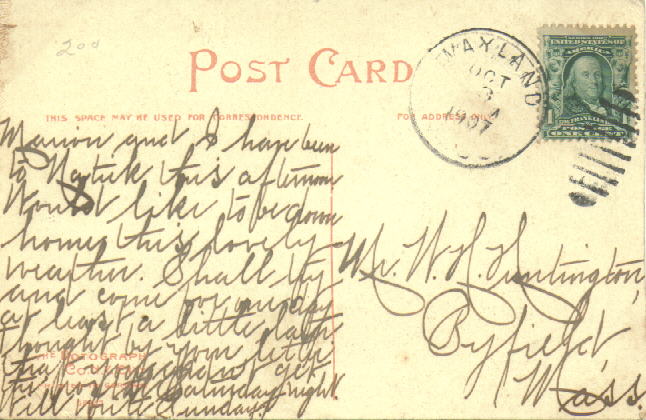 200
POST CARD
THIS SPACE MAY BE USED FOR CORRESPONDENCE.
FOR ADDRESS ONLY
OCT
3
1907
UNITED STATES OF
AMERICA
FRANKLIN
POSTAGE
ONE CENT
Marion and I have been
to Natick this afternoon
Would like to be down
home this lovely
weather. Shall try
and come for one day
at least a little later
thought by your letter
that you would not get
this before Saturday night
Will write Sunday
THE ROTOGRAPH
Mr. W. H. Huntington,
Byfield,
Mass.